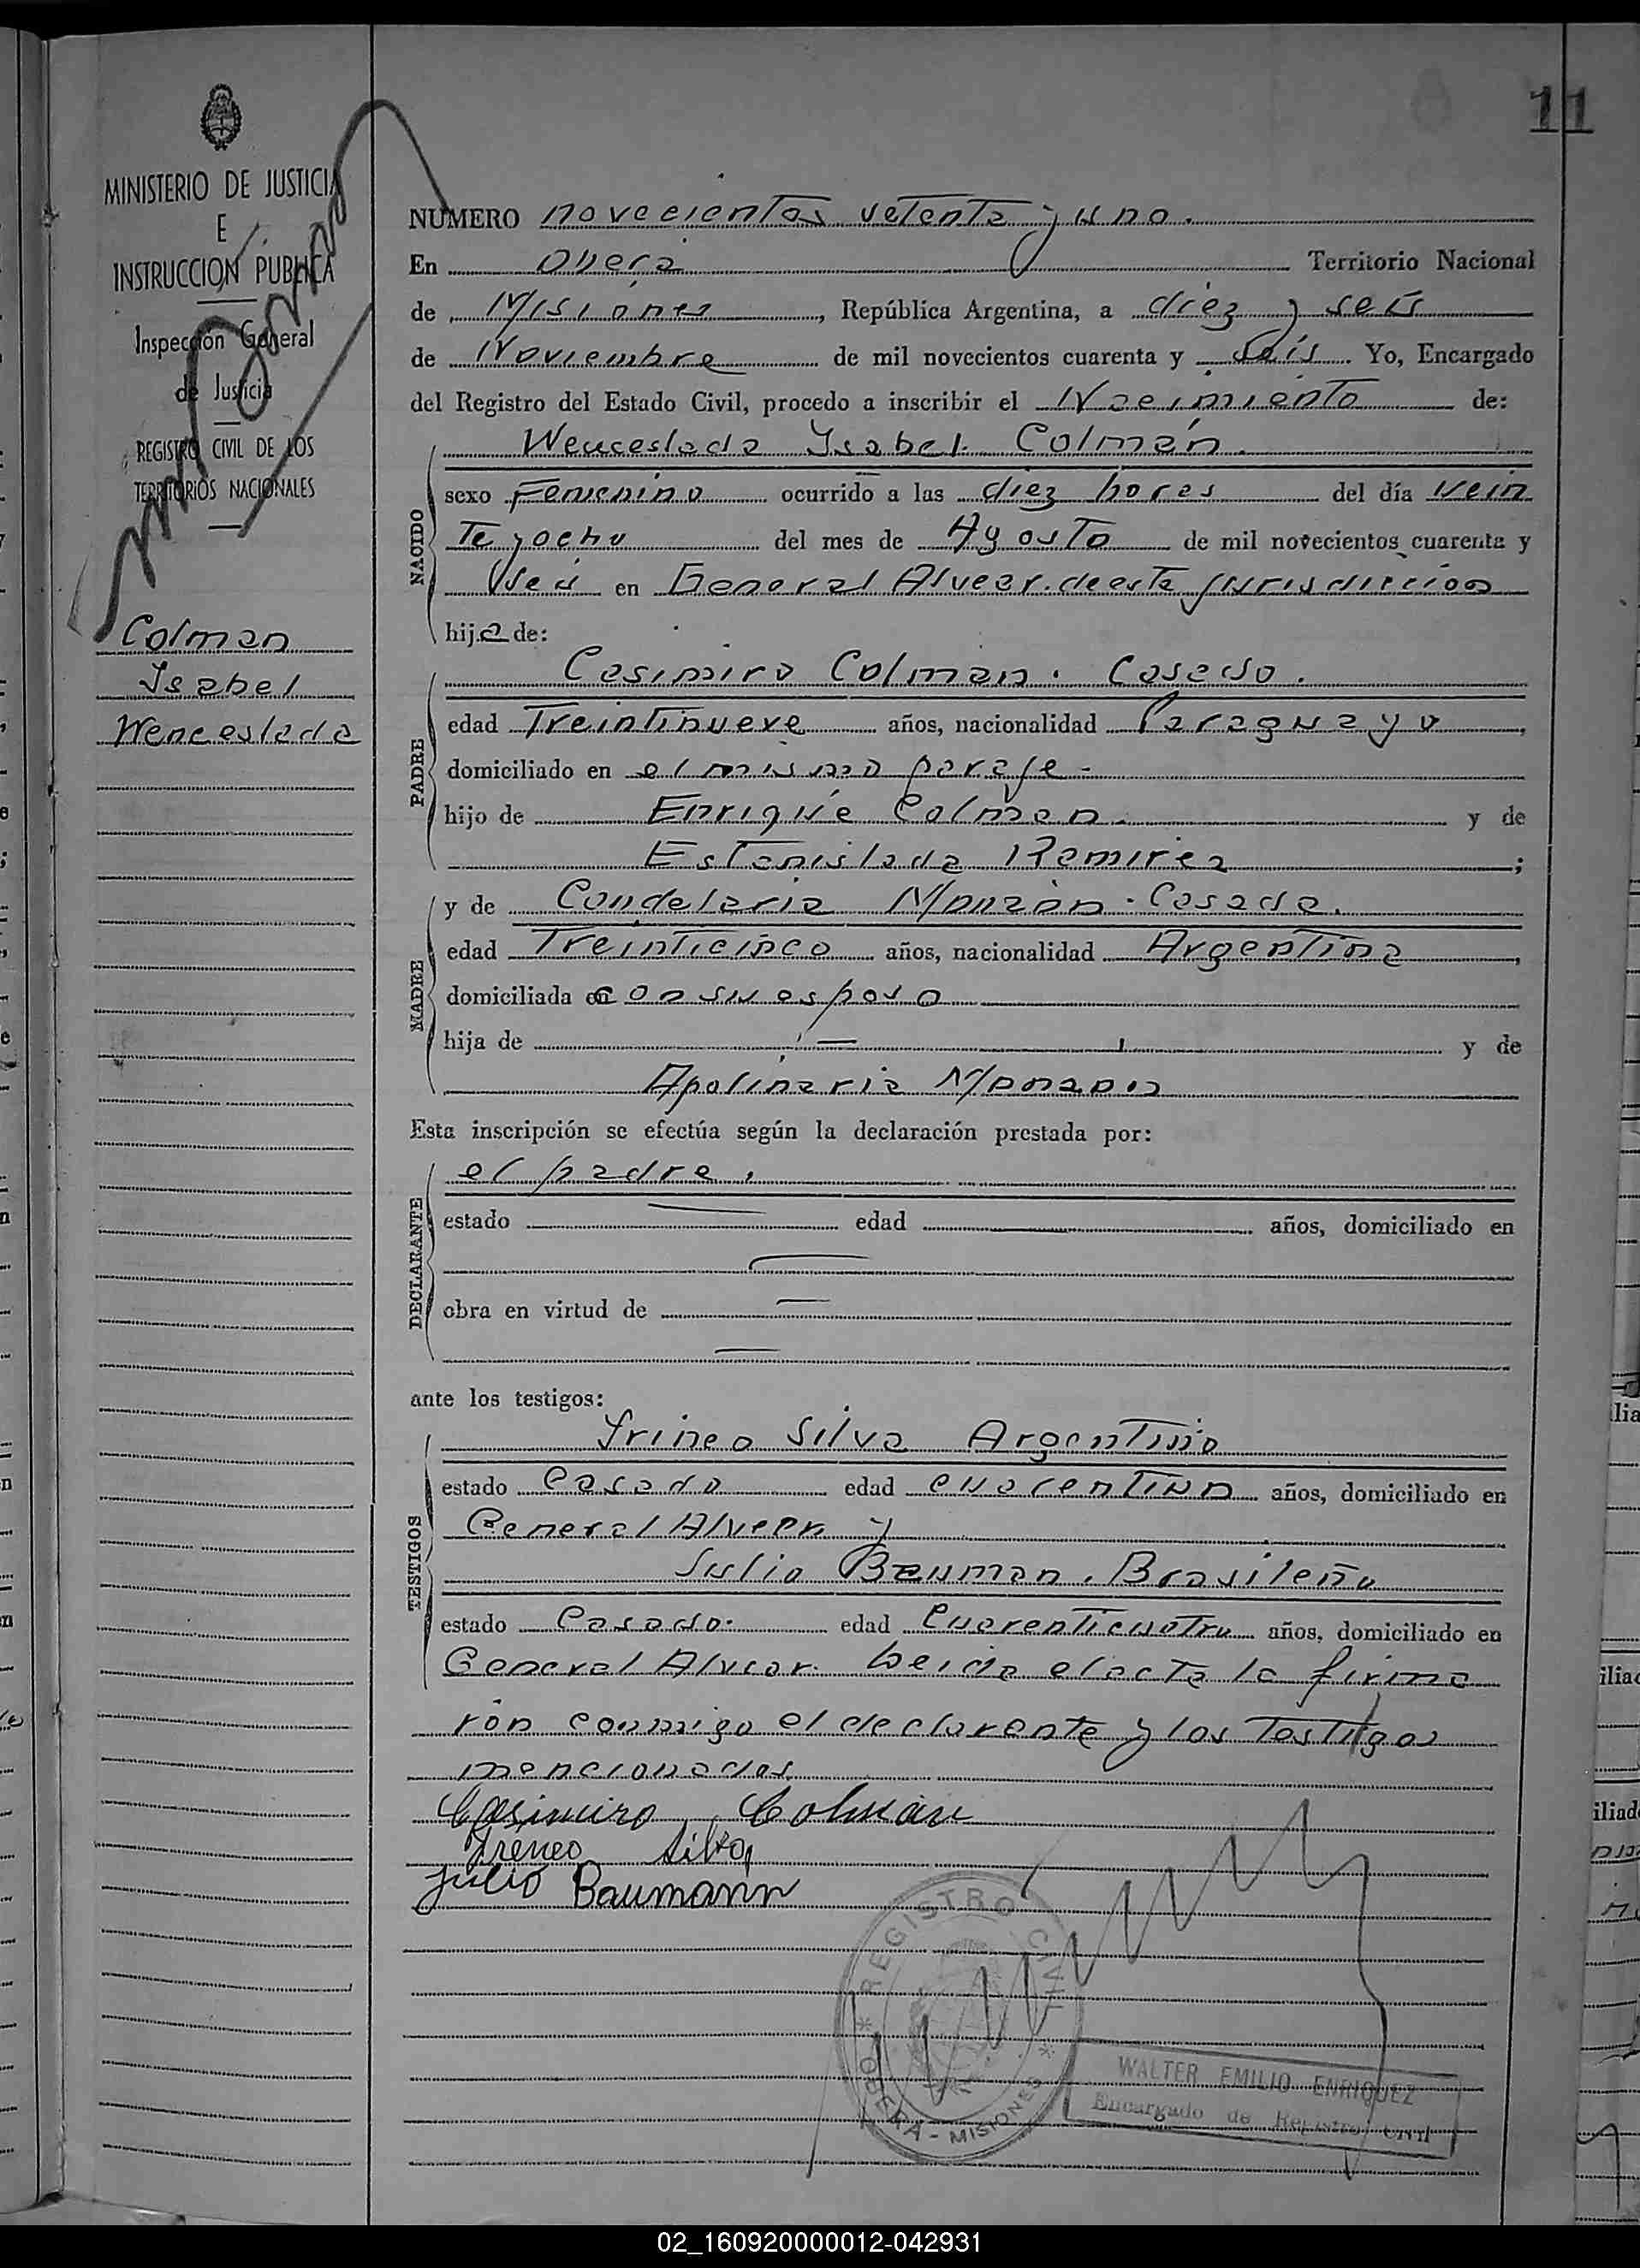 11
MINISTERIO DE JUSTICIA
E
INSTRUCCION PUBLICA
Inspección General
de Justicia
REGISTRO CIVIL DE LOS
TERRITORIOS NACIONALES
Colman
Isabel
Wenceslada
NUMERO novecientos setenta y uno.
En Oberá Territorio Nacional
de Misiones, República Argentina, a diez y seis
de Noviembre de mil novecientos cuarenta y Seis. Yo, Encargado
del Registro del Estado Civil, procedo a inscribir el Nacimiento de:
NACIDO
Wenceslada Ysabel Colmán.
sexo Femenino ocurrido a las diez hores del día vein
te y ocho del mes de Agosto de mil novecientos cuarenta y
seis en General Alvear. de esta jurisdiccion
hija de:
PADRE
Casimiro Colman. Casado.
edad Treintinueve años, nacionalidad Paraguayo,
domiciliado en el mismo paraje-
hijo de Enrique Colman. y de
Estanislada Ramirez;
MADRE
y de Candelaria Monzón. Casada.
edad Treinticinco años, nacionalidad Argentina,
domiciliada en con su esposo
hija de — y de
Apolinaria Monzon
Esta inscripción se efectúa según la declaración prestada por:
DECLARANTE
el padre,
estado — edad años, domiciliado en
—
obra en virtud de —
—
ante los testigos:
TESTIGOS
Irineo Silva Argentino
estado Casado edad cuarentiun años, domiciliado en
General Alvear y
Julio Bauman. Brasileño
estado Casado. edad Cuarenticuatro años, domiciliado en
General Alvear. Leida el acta la firma
ron conmigo el declarante y los Testigos
mencionados
Casimiro Colmán
Ireneo Silva
Julio Baumann
REGISTRO CIVIL
OBERA - MISIONES
WALTER EMILIO ENRIQUEZ
Encargado de Registro Civil
02_160920000012-042931